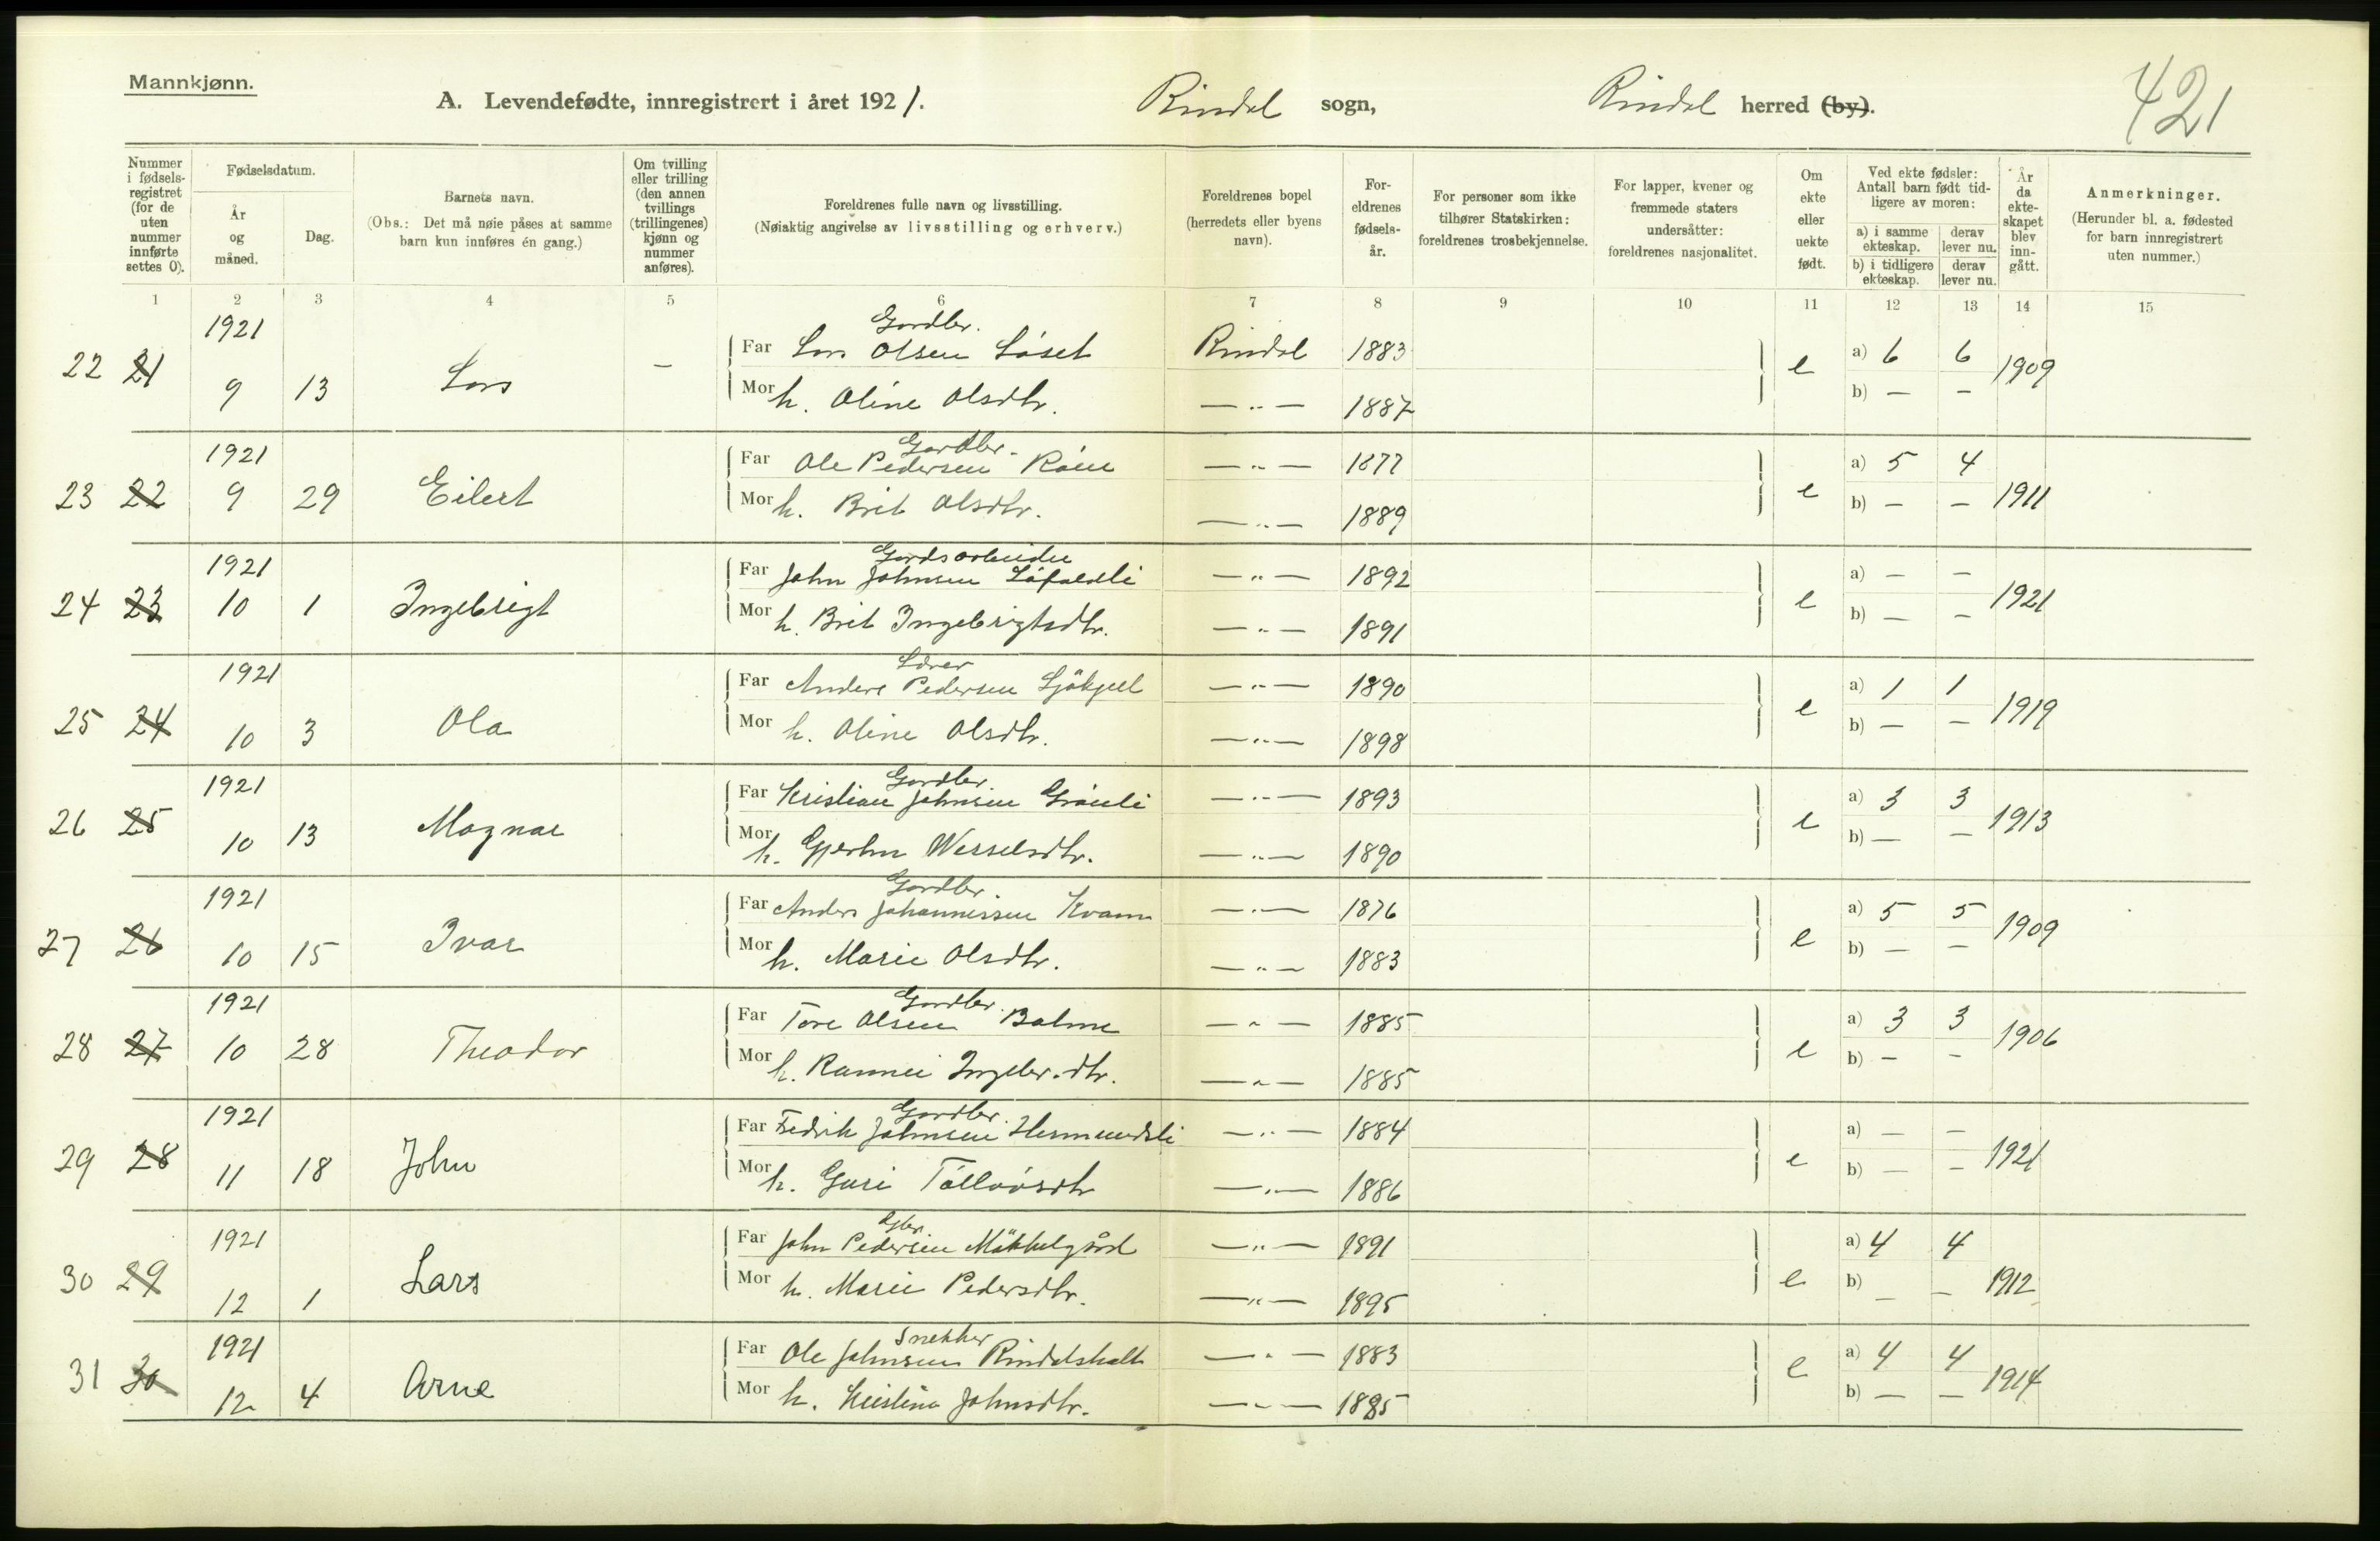 Mannkjønn.
A. Levendefødte, innregistrert i året 1921.
Rindal sogn, Rindal herred (by).
421
Nummer i fødsels-registret (for de uten nummer innførte settes 0).
Fødselsdatum.
År og måned.
Dag.
Barnets navn.
(Obs.: Det må nøie påses at samme barn kun innføres én gang.)
Om tvilling eller trilling (den annen tvillings (trillingenes) kjønn og nummer anføres).
Foreldrenes fulle navn og livsstilling.
(Nøiaktig angivelse av livsstilling og erhverv.)
Foreldrenes bopel (herredets eller byens navn).
For-eldrenes fødsels-år.
For personer som ikke tilhører Statskirken: foreldrenes trosbekjennelse.
For lapper, kvener og fremmede staters undersåtter: foreldrenes nasjonalitet.
Om ekte eller uekte født.
Ved ekte fødsler: Antall barn født tid-ligere av moren:
a) i samme ekteskap. derav lever nu.
b) i tidligere ekteskap. derav lever nu.
År da ekte-skapet blev inn-gått.
Anmerkninger.
(Herunder bl. a. fødested for barn innregistrert uten nummer.)
1 2 3 4 5 6 7 8 9 10 11 12 13 14 15
1921 Gardbr.
22 21 9 13 Lars — Far Lars Olsen Løset Rindal 1883 e a) 6 6 1909
Mor h. Oline Olsdtr. —„— 1887 b) — —
1921 Gardbr.
23 22 9 29 Eilert Far Ole Pedersen Røen —„— 1877 e a) 5 4 1911
Mor h. Brit Olsdtr. —„— 1889 b) — —
1921 Gardsarbeider
24 23 10 1 Ingebrigt Far John Johnsen Løfaldli —„— 1892 e a) — — 1921
Mor h. Brit Ingebrigtsdtr. —„— 1891 b) — —
1921 Lærer
25 24 10 3 Ola Far Anders Pedersen —„— 1890 e a) 1 1 1919
Mor h. Oline Olsdtr. —„— 1898 b) — —
1921 Gardbr.
26 25 10 13 Magnar Far Kristian Johnsen Grønli —„— 1893 e a) 3 3 1913
Mor h. Wesselsdtr. —„— 1890 b) — —
1921 Gardbr.
27 26 10 15 Ivar Far Anders Johannessen Kvam —„— 1876 e a) 5 5 1909
Mor h. Marie Olsdtr. —„— 1883 b) — —
1921 Gardbr.
28 27 10 28 Theodor Far Tore Olsen Bolme —„— 1885 e a) 3 3 1906
Mor h. Rannei Ingebr.dtr. —„— 1885 b) — —
1921 Gardbr.
29 28 11 18 John Far Fredrik Johnsen Hermundsli —„— 1884 e a) — — 1921
Mor h. Guri —„— 1886 b) — —
1921 Gbr.
30 29 12 1 Lars Far John Pedersen —„— 1891 e a) 4 4 1912
Mor h. Marie Pedersdtr. —„— 1895 b) — —
1921 Snekker
31 30 12 4 Arne Far Ole Johnsen —„— 1883 e a) 4 4 1914
Mor h. Kristina Johnsdtr. —„— 1885 b) — —